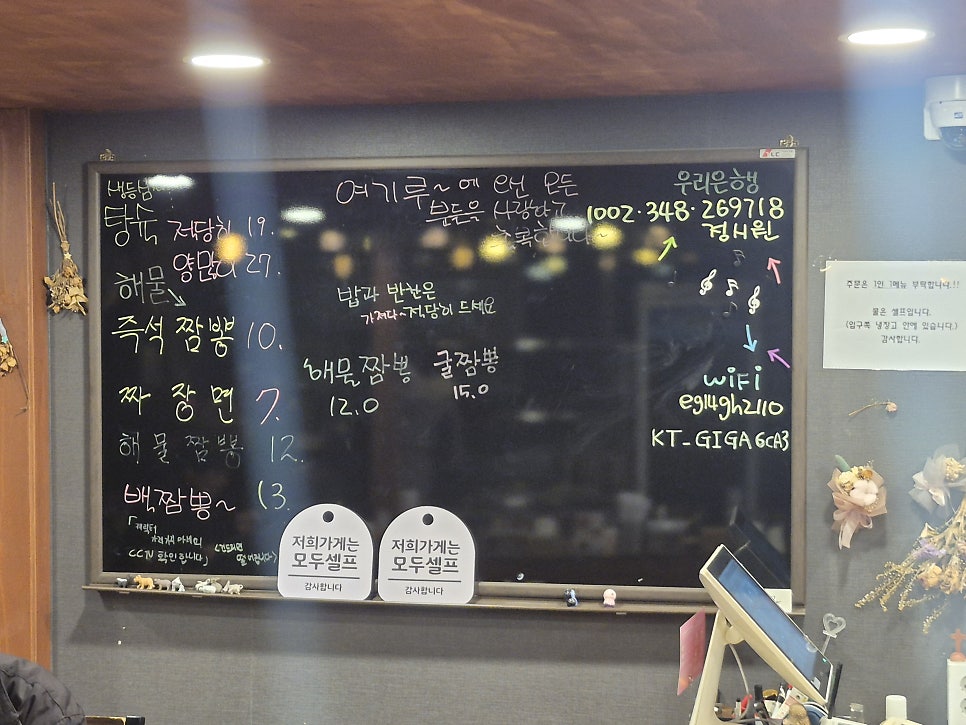 생등심
탕슉 적당히 19.
양많이 27.
해물
즉석 짬뽕 10.
짜장면 7.
해물짬뽕 12.
백짬뽕~ 13.
CCTV 확인합니다
여기루~에 오신 모든
분들을 사랑하고
축복합니다~
밥과 반찬은
가져다~적당히 드세요
해물짬뽕 굴짬뽕
12.0 15.0
우리은행
1002·348·269718
정시원
WiFi
eg14gh2110
KT_GIGA6CA3
저희가게는
모두셀프
감사합니다
저희가게는
모두셀프
감사합니다
주문은 1인 1메뉴 부탁합니다.!!
물은 셀프입니다.
(입구쪽 냉장고 안에 있습니다.)
감사합니다.